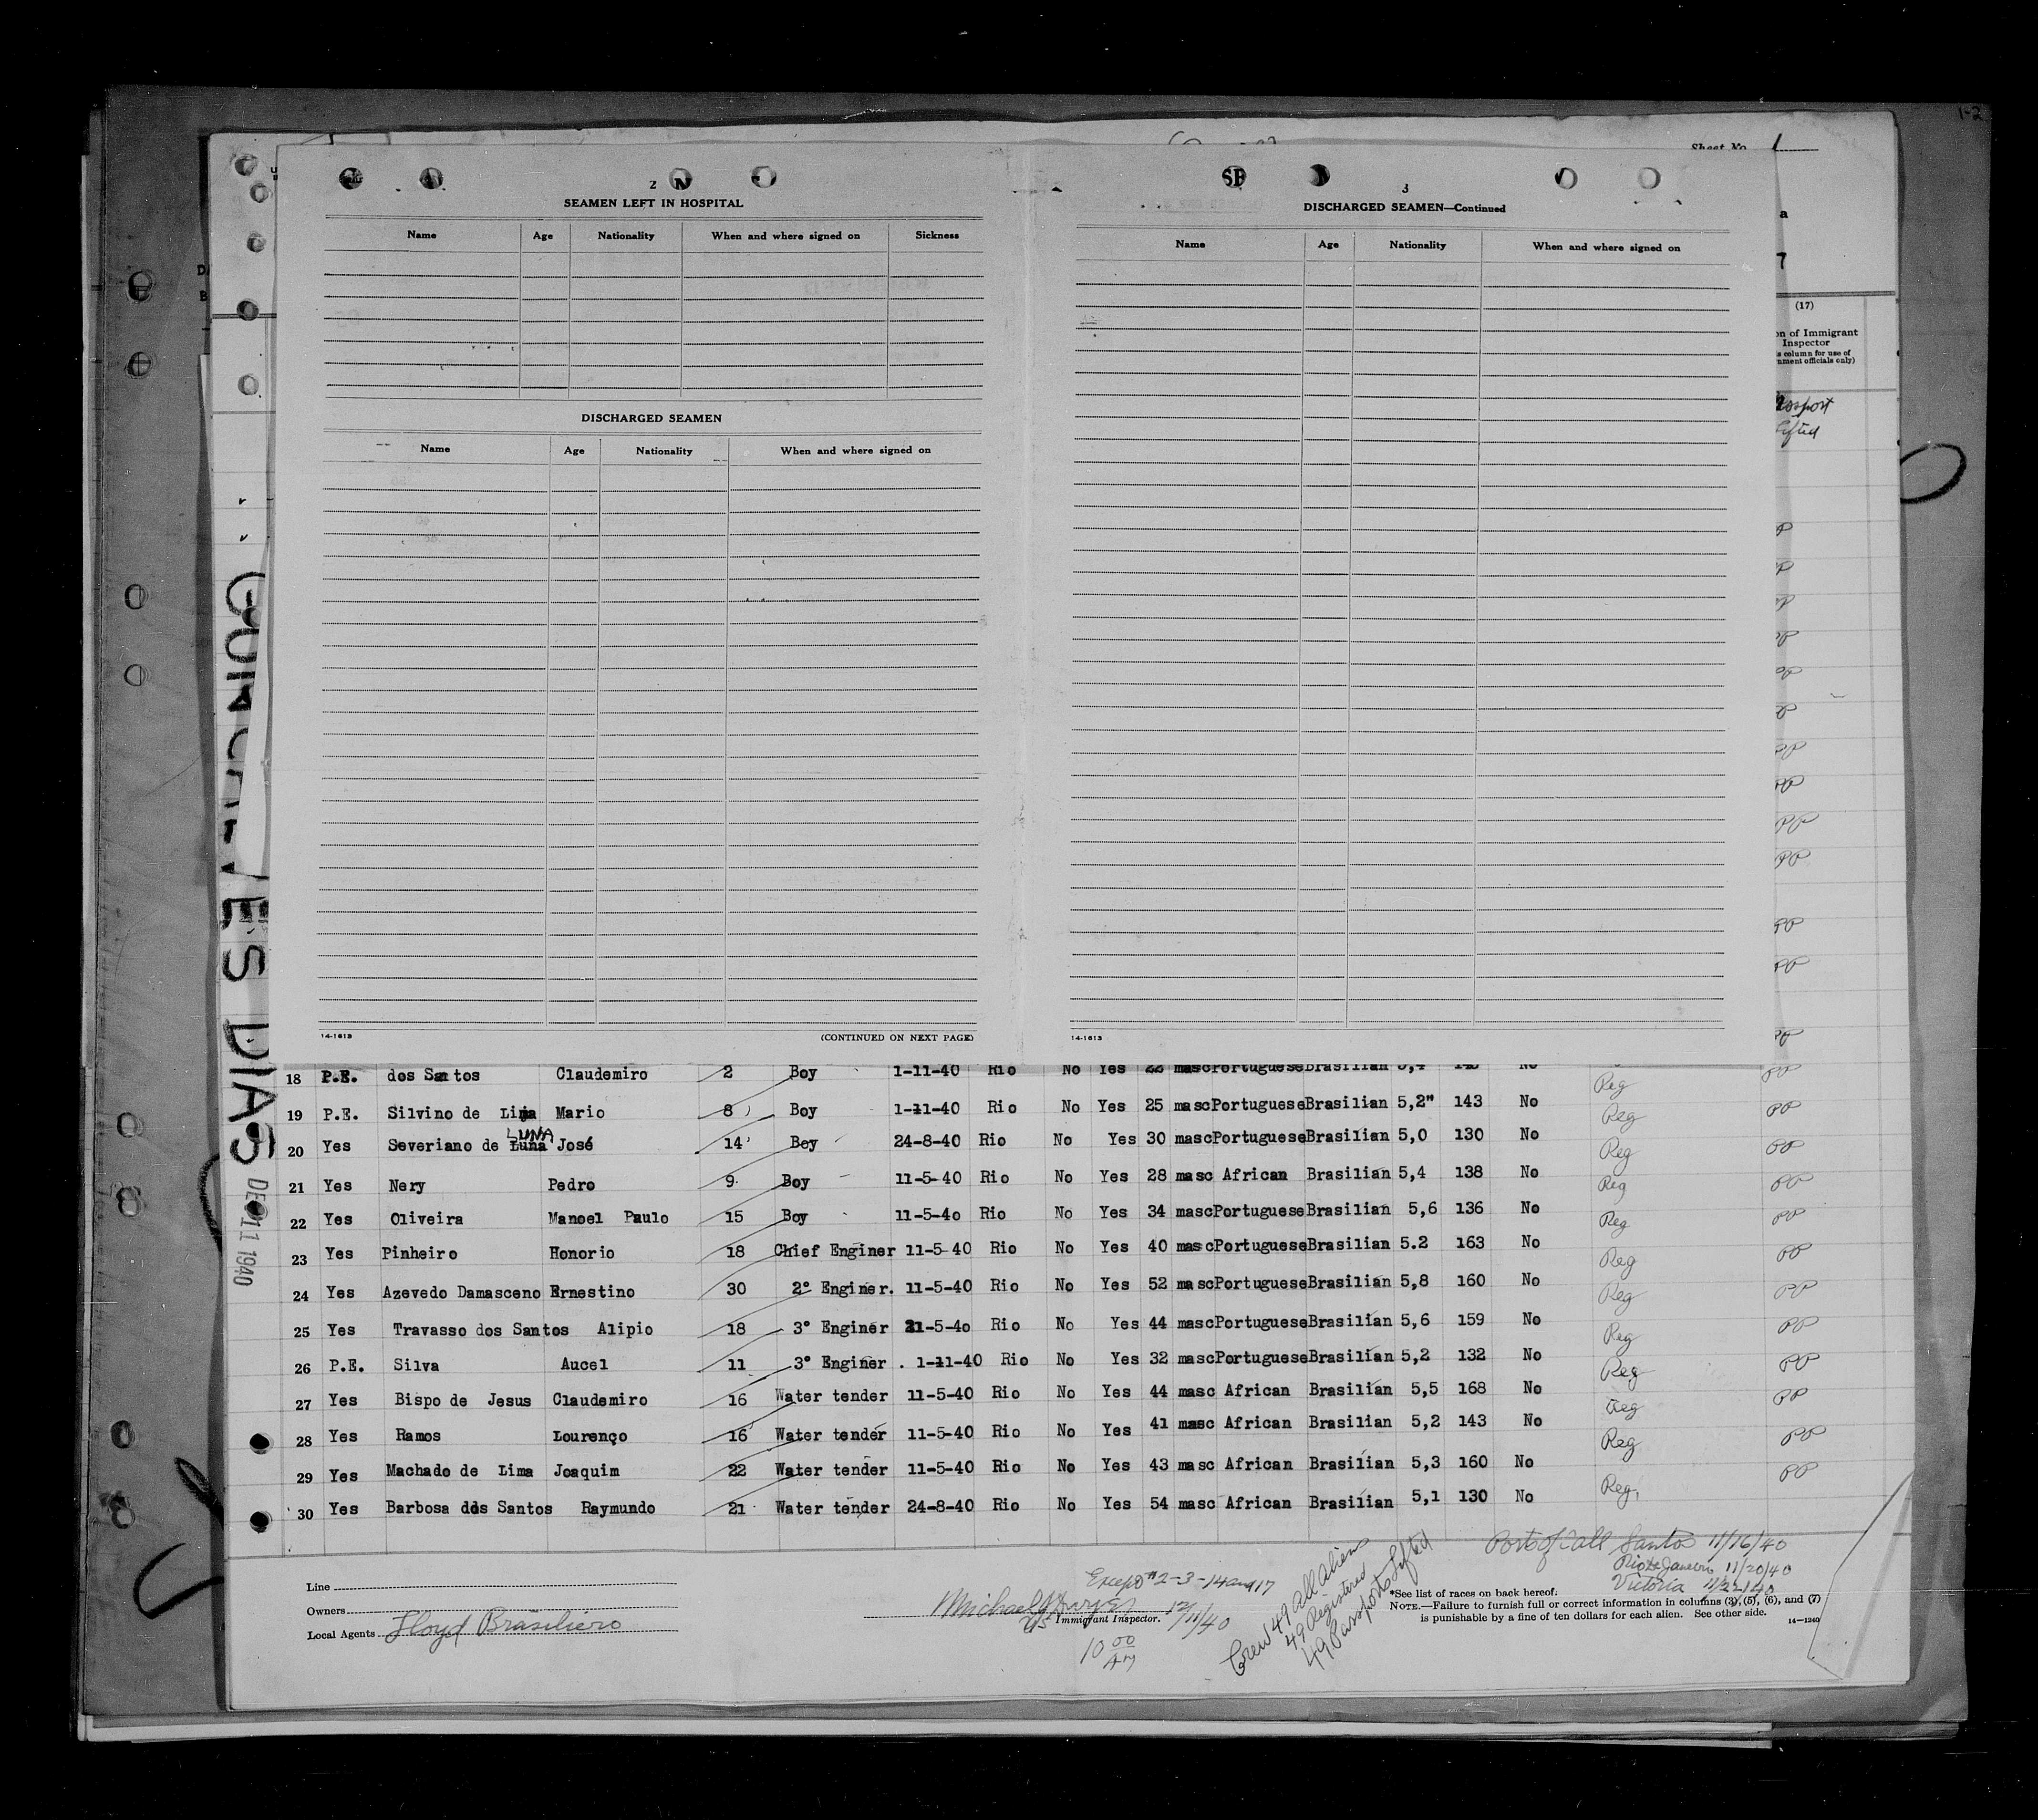 1-2
Sheet No. 1
2
SEAMEN LEFT IN HOSPITAL
Name Age Nationality When and where signed on Sickness
DISCHARGED SEAMEN
Name Age Nationality When and where signed on
14-1613 (CONTINUED ON NEXT PAGE)
3
DISCHARGED SEAMEN—Continued
Name Age Nationality When and where signed on
14-1613
(17)
on of Immigrant
Inspector
s column for use of
nment officials only)
ES DIAS
DEC 11 1940
18 P.E. dos Santos Claudemiro 2 Boy 1-11-40 Rio No Yes 22 masc Portuguese Brasilian 5,4 No Reg PP
19 P.E. Silvino de Lima Mario 8 Boy 1-11-40 Rio No Yes 25 masc Portuguese Brasilian 5,2" 143 No Reg PP
LUNA
20 Yes Severiano de Luna José 14 Boy 24-8-40 Rio No Yes 30 masc Portuguese Brasilian 5,0 130 No Reg PP
21 Yes Nery Pedro 9 Boy 11-5-40 Rio No Yes 28 masc African Brasilian 5,4 138 No Reg PP
22 Yes Oliveira Manoel Paulo 15 Boy 11-5-40 Rio No Yes 34 masc Portuguese Brasilian 5,6 136 No Reg PP
23 Yes Pinheiro Honorio 18 Chief Enginer 11-5-40 Rio No Yes 40 masc Portuguese Brasilian 5.2 163 No Reg PP
24 Yes Azevedo Damasceno Ernestino 30 2° Enginer. 11-5-40 Rio No Yes 52 masc Portuguese Brasilian 5,8 160 No Reg PP
25 Yes Travasso dos Santos Alipio 18 3° Enginer 21-5-40 Rio No Yes 44 masc Portuguese Brasilian 5,6 159 No Reg PP
26 P.E. Silva Aucel 11 3° Enginer . 1-11-40 Rio No Yes 32 masc Portuguese Brasilian 5,2 132 No Reg PP
27 Yes Bispo de Jesus Claudemiro 16 Water tender 11-5-40 Rio No Yes 44 masc African Brasilian 5,5 168 No Reg PP
28 Yes Ramos Lourenço 16 Water tender 11-5-40 Rio No Yes 41 masc African Brasilian 5,2 143 No Reg PP
29 Yes Machado de Lima Joaquim 22 Water tender 11-5-40 Rio No Yes 43 masc African Brasilian 5,3 160 No Reg PP
30 Yes Barbosa dos Santos Raymundo 21 Water tender 24-8-40 Rio No Yes 54 masc African Brasilian 5,1 130 No
Line
Owners
Local Agents Lloyd Brasiliero
Except #2-3-14 and 17
Michael
US Immigrant Inspector. 12/11/40
10 00 AM
Crew 49 all aliens
49 Registered
49 Passports Lifted
Ports of Call Santos 11/16/40
Rio de Janeiro 11/20/40
Victoria 11/22/40
*See list of races on back hereof.
NOTE.—Failure to furnish full or correct information in columns (3), (5), (6), and (7)
is punishable by a fine of ten dollars for each alien. See other side.
14-1240